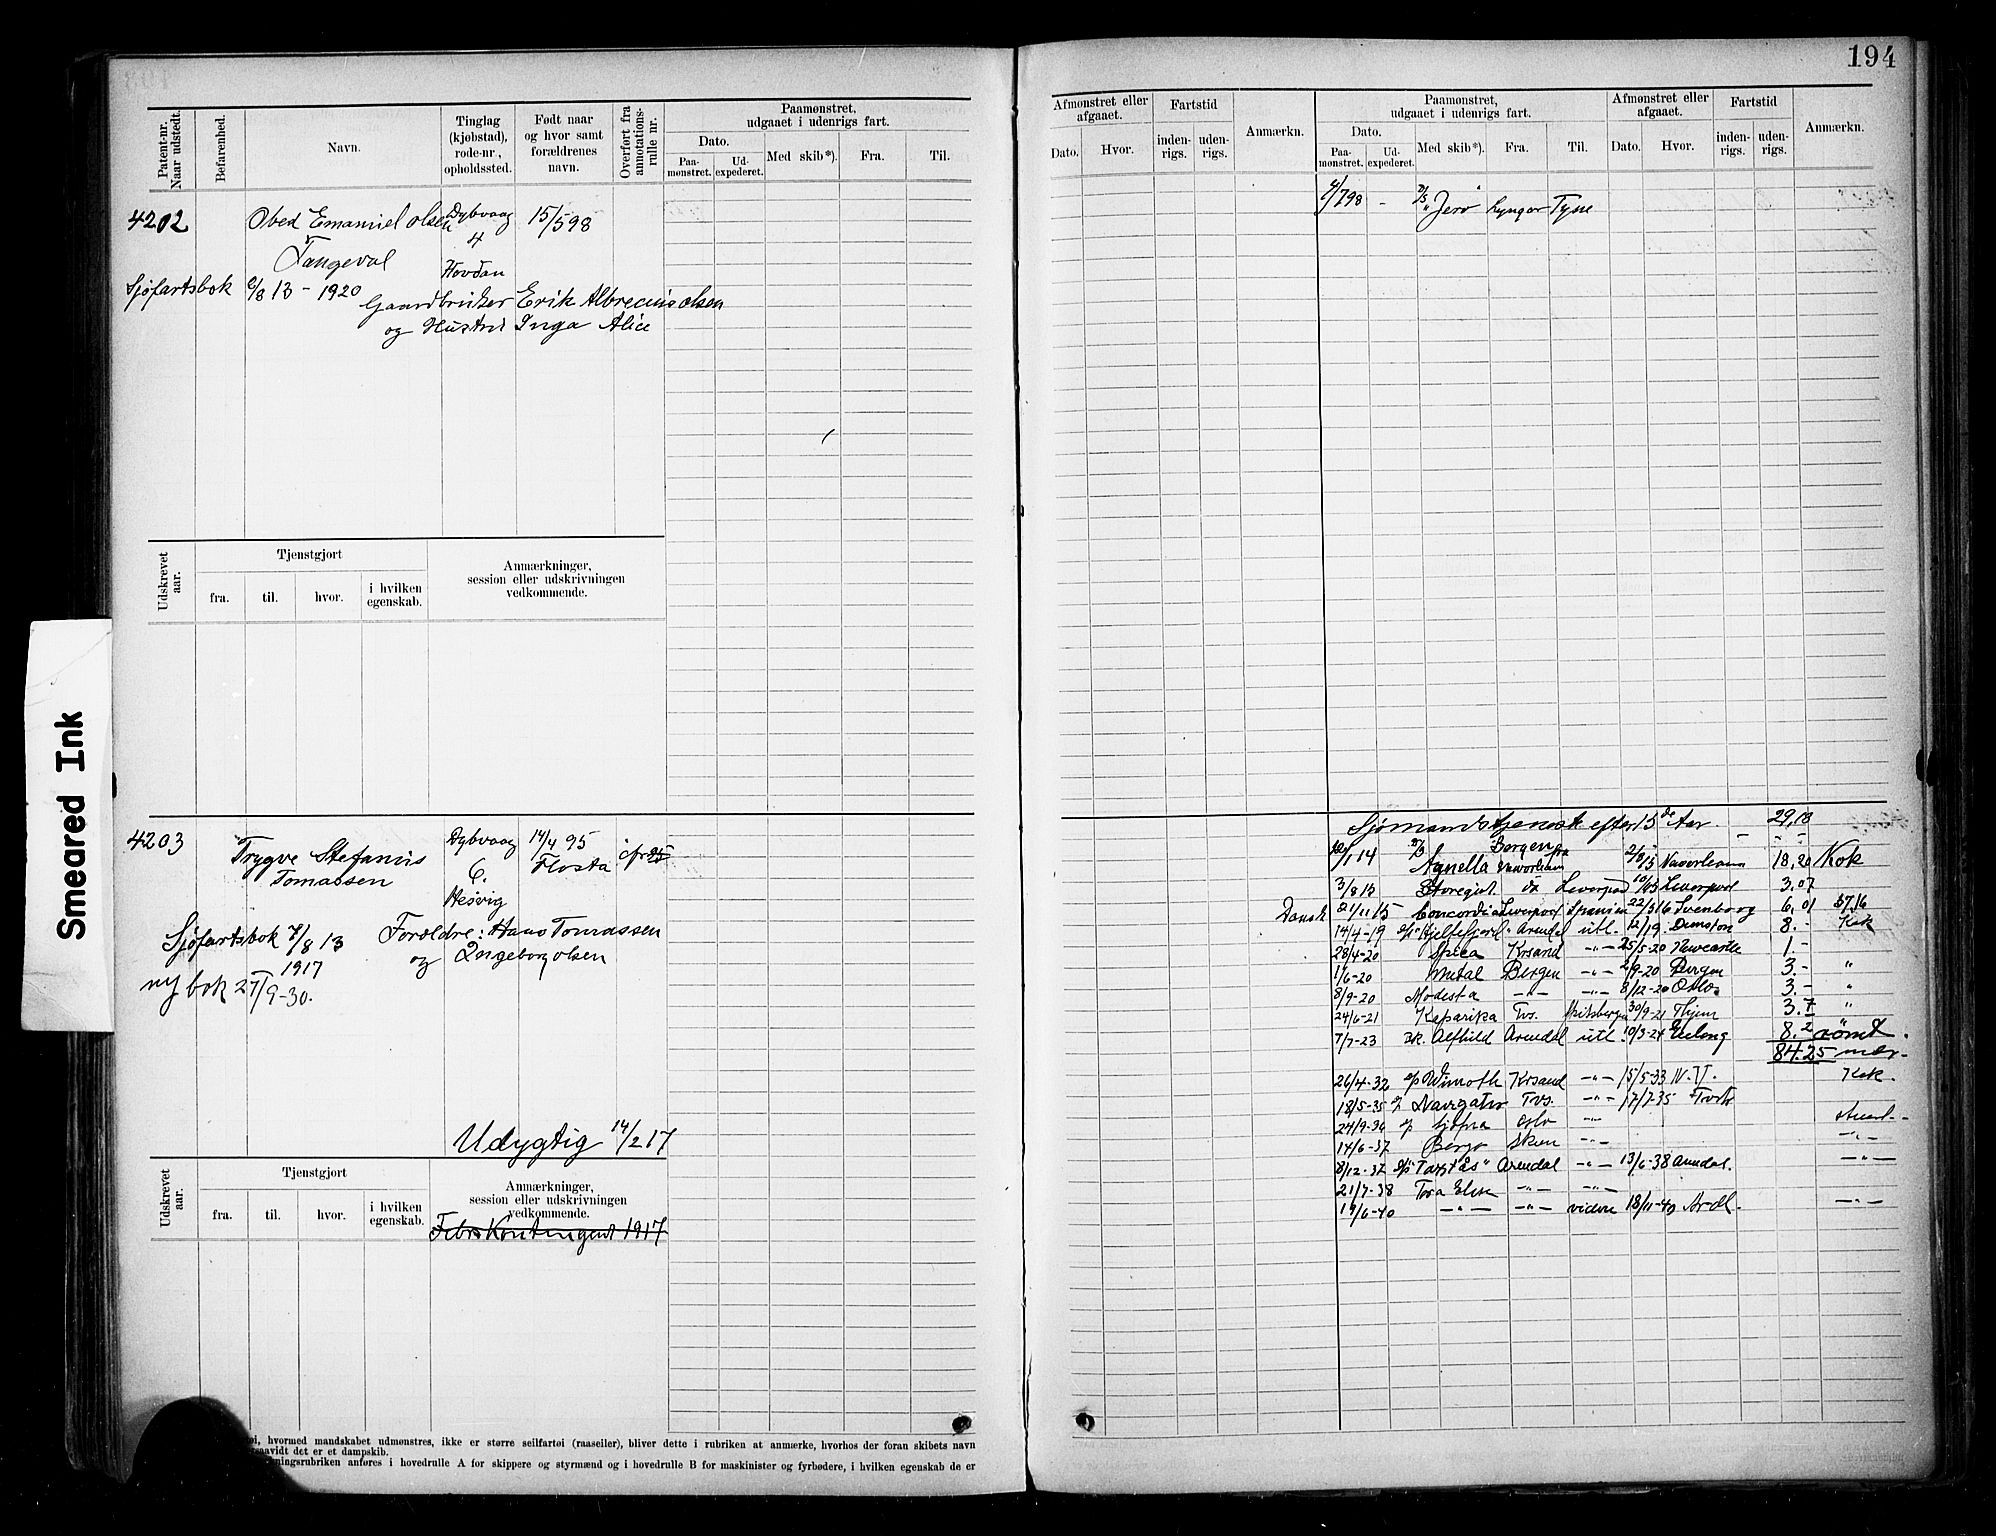 194
Patent-nr. Naar udstedt.
Befarenhed.
Navn.
Tinglag (kjøbstad), rode-nr, opholdssted.
Født naar og hvor samt forældrenes navn.
Overført fra annotations-rulle nr.
Paamønstret, udgaaet i udenrigs fart.
Dato.
Paa-mønstret.
Ud-expederet.
Med skib*).
Fra.
Til.
Afmønstret eller afgaaet.
Dato.
Hvor.
Fartstid
inden-rigs.
uden-rigs.
Anmærkn.
Paamønstret, udgaaet i udenrigs fart.
Dato.
Paa-mønstret.
Ud-expederet.
Med skib*).
Fra.
Til.
Afmønstret eller afgaaet.
Dato.
Hvor.
Fartstid
inden-rigs.
uden-rigs.
Anmærkn.
4202 Obed Emanuel Olsen Dybvaag 15/5 98
4
Tangeval
Hovdan
Sjøfartsbok 6/8 13 - 1920 Gaardbruker Erik Albrecius Olsen
og Hustru Inga Alice
- Jerv Lyngør Tysk
Udskrevet aar.
Tjenstgjort
fra.
til.
hvor.
i hvilken egenskab.
Anmærkninger, session eller udskrivningen vedkommende.
4203 Trygve Stefanus Tomassen Dybvaag 14/4 95
6. Flosta
Hesvig
Sjøfartsbok 7/8 13 Foreldre: Hans Tomassen
1917 og Ingeborg Olsen
ny bok 27/9-30.
Udygtig 14/2 17
Udskrevet aar.
Tjenstgjort
fra.
til.
hvor.
i hvilken egenskab.
Anmærkninger, session eller udskrivningen vedkommende.
Febr Kontingent 1917
Sjømandstjeneste efter 15de Aar. 29,13
Bergen fra
1 14 Agnella 18.20 Kok
3/8 15 Leverpool Leverpool 3.07
Dansk 21/11 15 Concordia Leverpool Spanien 22/3 16 Svenborg 6,01
14/4-19 Hjeltefjord Arendal utl. 8.- Kok
28/4-20 Spica Krsand -"- 25/5-20 Newcastle 1.-
1/6-20 Metal Bergen -"- 2/9-20 Bergen 3.- "
8/9-20 Modesta -"- -"- 8/12-20 Oslo 3.- "
24/6-21 Kaparika Tvs. Spitsbergen 30/9-21 Thjem 3.7 "
7/7-23 sk. Alfhild Arendal utl. 10/3-24 8.2 rømt.
84.25
26/4-32 Wimoth Krsand -"- 15/5-33 Kok.
18/5-35 Navigator Tvs. -"- 17/7-35
24/9-36 Sjofna Oslo -"-
14/6-37 Bergo Skien -"- -"-
8/12-37 "Tarstås" Arendal -"- 13/6-38 Arendal. -"-
21/7-38 Tora Elise -"- -"-
1/6-40 -"- -"- videre 18/11-40 Ardl. -"-
Smeared Ink
hvormed mandskabet udmønstres, ikke er større seilfartøi (raaseiler), bliver dette i rubriken at anmærke, hvorhos der foran skibets navn
saavidt det er et dampskib.
ningsrubriken anføres i hovedrulle A for skippere og styrmænd og i hovedrulle B for maskinister og fyrbødere, i hvilken egenskab de er